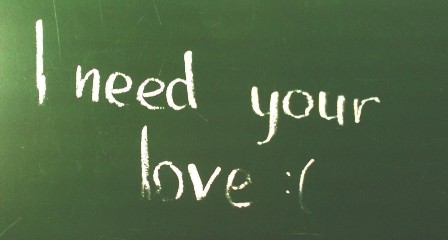 I need your
love :(